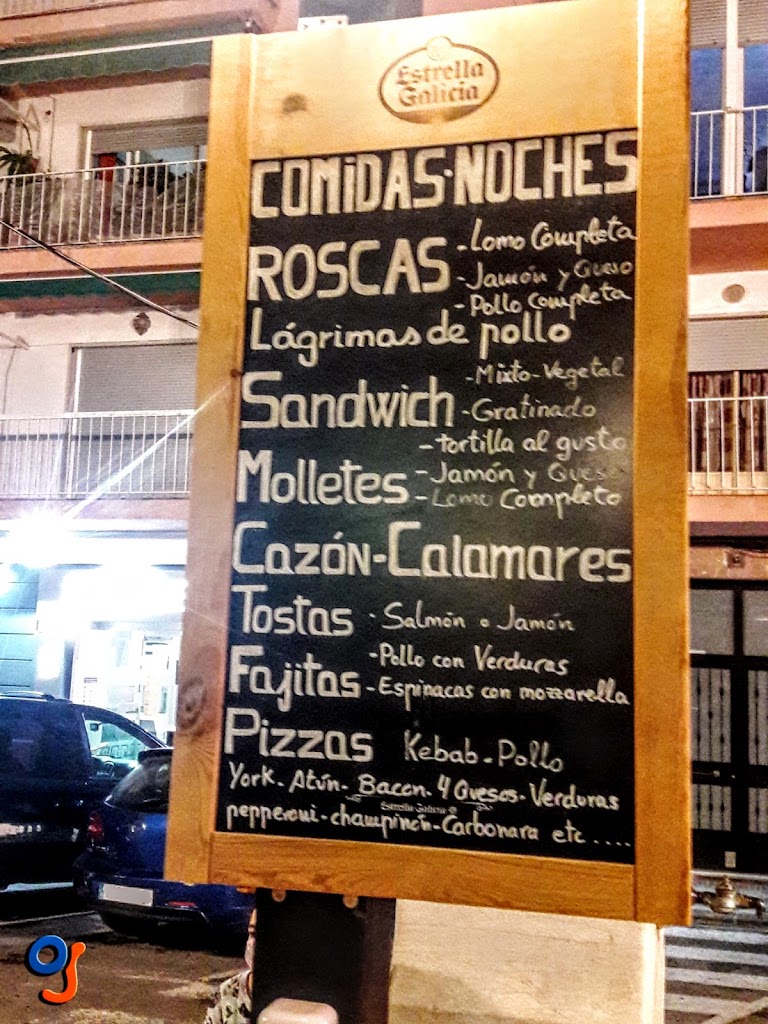 Estrella
Galicia
COMiDAS-NOCHES
ROSCAS - Lomo Completa
- Jamón y Queso
- Pollo Completa
Lágrimas de pollo
Sandwich - Mixto - Vegetal
- Gratinado
- tortilla al gusto
Molletes - Jamón y Queso
- Lomo Completo
Cazón - Calamares
Tostas - Salmón o Jamón
Fajitas - Pollo con Verduras
- Espinacas con mozzarella
Pizzas Kebab - Pollo
York - Atún - Bacon - 4 Quesos - Verduras
Estrella Galicia
pepperoni - champiñón - Carbonara etc ....